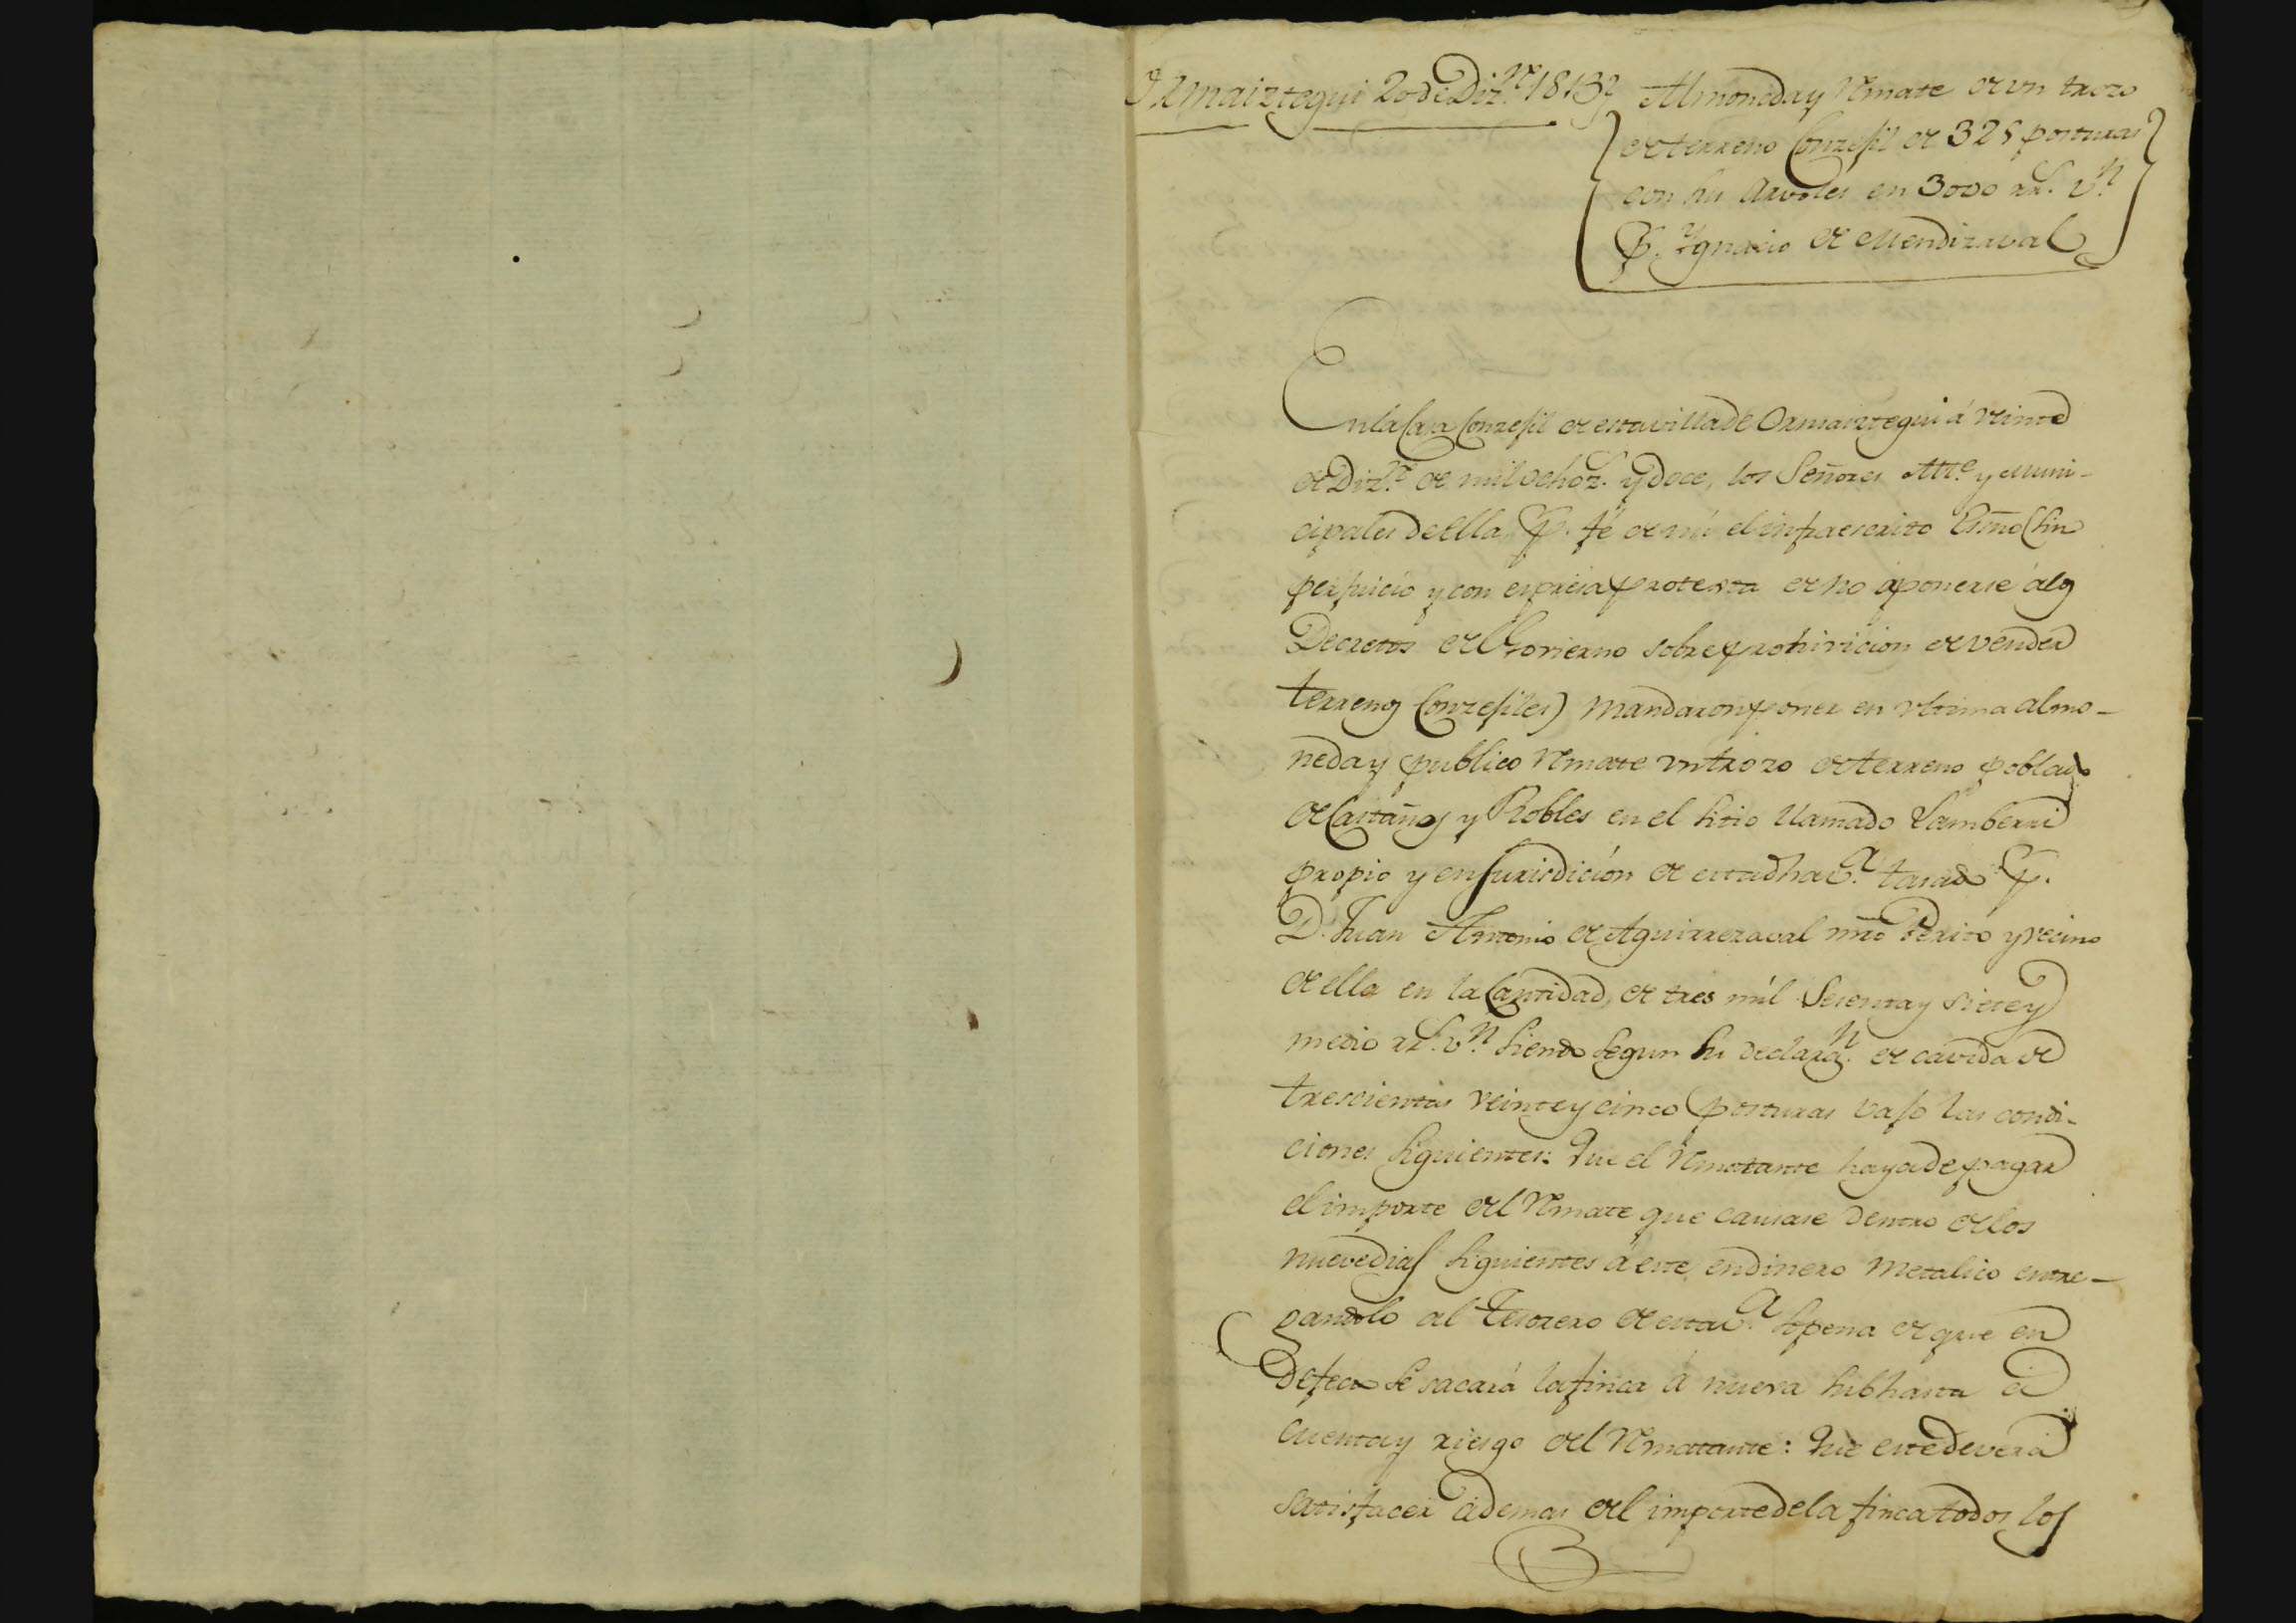 Ormaiztegui 20 de Diz.re 1812
Almoneda y Remate de un trozo
de terreno Conzejil de 325 posturas
con sus Arvoles en 3000 rr.s v.n
P. Ygnacio de Mendizaval
En la Casa Conzejil de esta villa de Ormaiztegui á veinte
de Diz.re de mil ochoz.s y doce, los Señores Alt.e y Muni-
cipales de ella P. fé de mi el infraescrito Esño (sin
perjuicio y con expresa protesta de no oponerse á los
Decretos del Govierno sobre prohivicion de vender
terrenos Conzejiles) mandaron poner en ultima almo-
neda y publico Remate un trozo de terreno poblado
de Castaños y Robles en el sitio llamado Lamberri
propio y en jurisdición de esta dha v.a tasado P.
D. Juan Antonio de Aguirrezaval mro Perito y vecino
de ella en la Cantidad de tres mil sesenta y siete y
medio rr.s v.n siendo segun su declaraz.n de cavida de
trescientas veinte y cinco posturas vajo las condi-
ciones siguientes: Que el Rematante haya de pagar
el importe del Remate que causase dentro de los
nueve dias siguientes á este en dinero metalico entre-
gandolo al Tesorero de esta v.a sopena de que en
defecto se sacará la finca á nueva subhasta á
cuenta y riesgo del Rematante: Que este deverá
satisfacer ademas del importe de la finca todos los